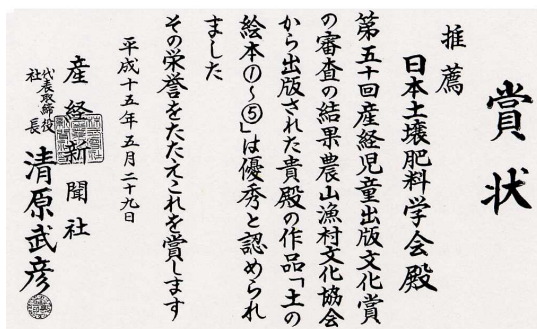 賞状
推薦
日本土壌肥料学会殿
第五十回産経児童出版文化賞
の審査の結果農山漁村文化協会
から出版された貴殿の作品「土の
絵本①〜⑤」は優秀と認められ
ました
その栄誉をたたえこれを賞します
平成十五年五月二十九日
産経新聞社
代表取締役
社長 清原武彦